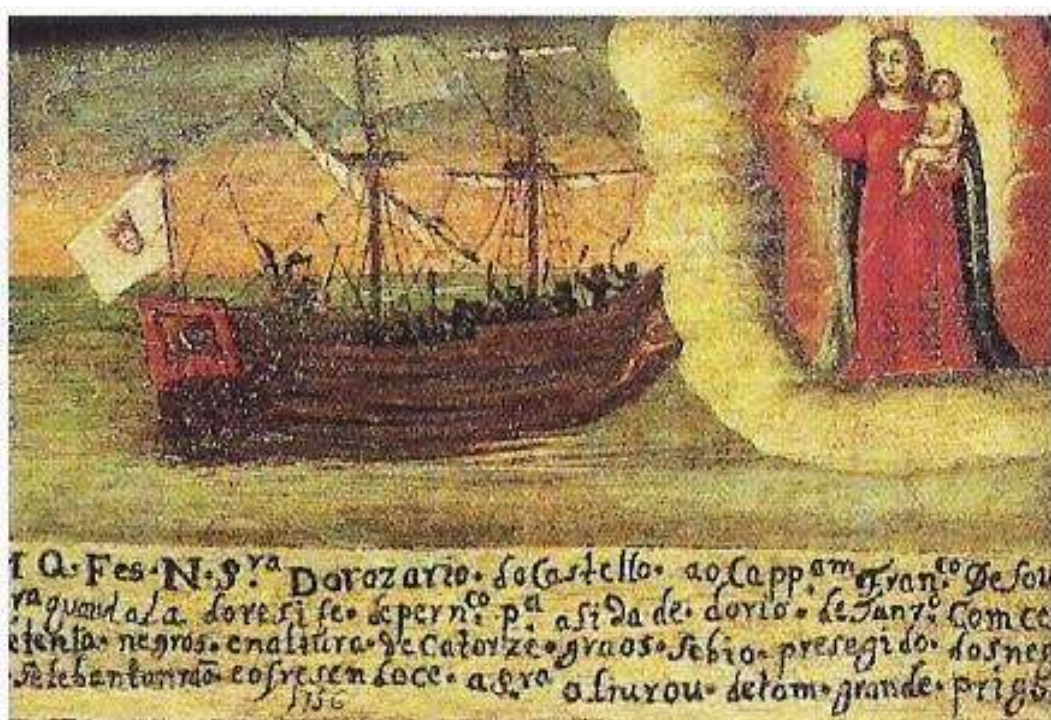 Q. Fes. N. Sra Dorozario. do Castello. ao Cappam Franco De sou
ra quando la do resife. de pernco pa a sida de. do rio. de Janro Com ce
etenta. negros. en altura. de Catorze. graos. se bio. presegido. dos neg
se lebantarão. e ofresendoce. a Sra o livrou. de tam. grande. prigo
1756